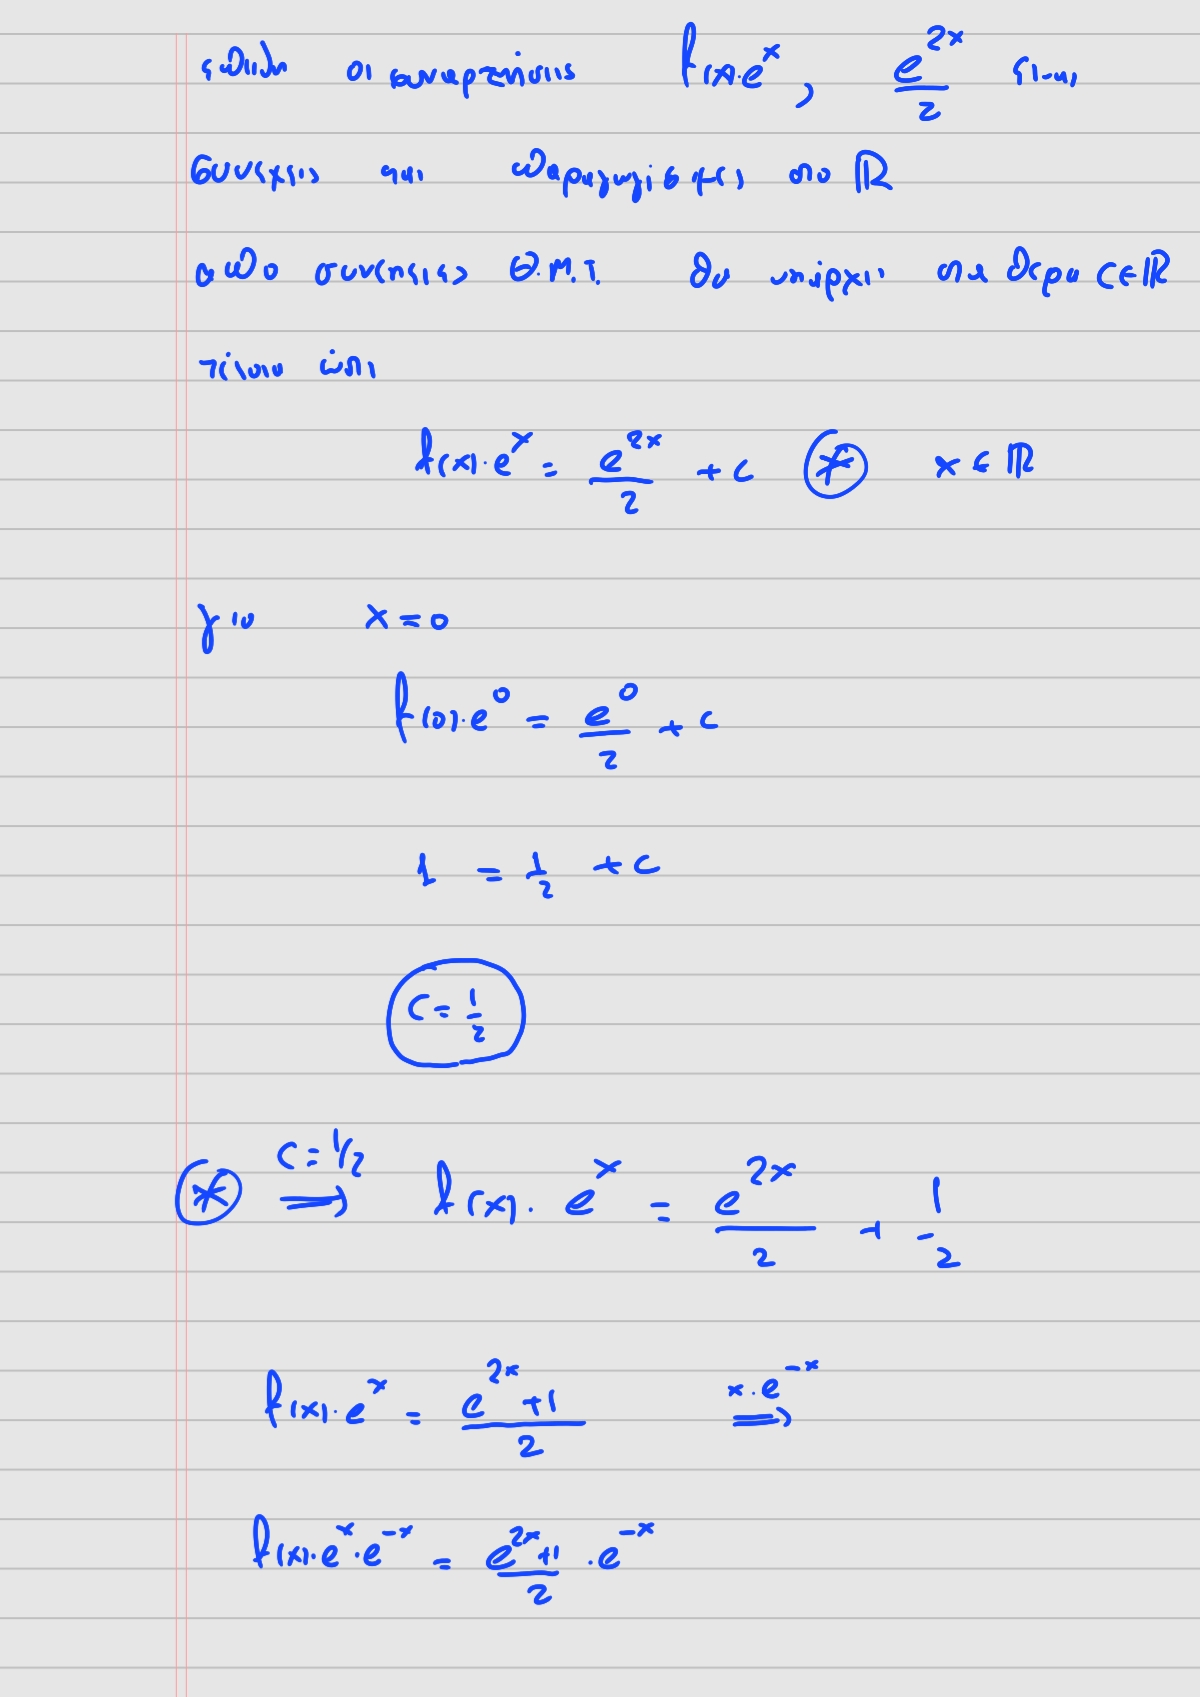 επειδή οι συναρτήσεις f(x)·e^x, e^{2x}/2 είναι
συνεχείς και παραγωγίσιμες στο ℝ
από συνέπειες Θ.Μ.Τ. θα υπάρχει σταθερα c∈ℝ
τέτοιο ώστε
f(x)·e^x = e^{2x}/2 + c (*) x∈ℝ
για x=0
f(0)·e^0 = e^0/2 + c
1 = 1/2 + c
c = 1/2
(*) c=1/2 ⟹ f(x)·e^x = e^{2x}/2 + 1/2
f(x)·e^x = (e^{2x}+1)/2 x·e^{-x} ⟹
f(x)·e^x·e^{-x} = (e^{2x}+1)/2 ·e^{-x}